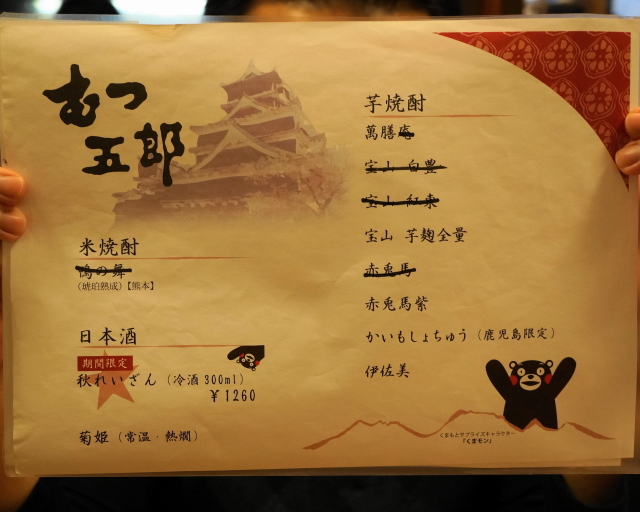 むつ
五郎
米焼酎
の舞
(琥珀熟成)【熊本】
日本酒
期間限定
秋れいざん (冷酒 300ml)
¥1260
菊姫 (常温・熱燗)
芋焼酎
萬膳庵
宝山 白豊
宝山 紅東
宝山 芋麹全量
赤兎馬
赤兎馬紫
かいもしょちゅう (鹿児島限定)
伊佐美
くまもとサプライズキャラクター
「くまモン」